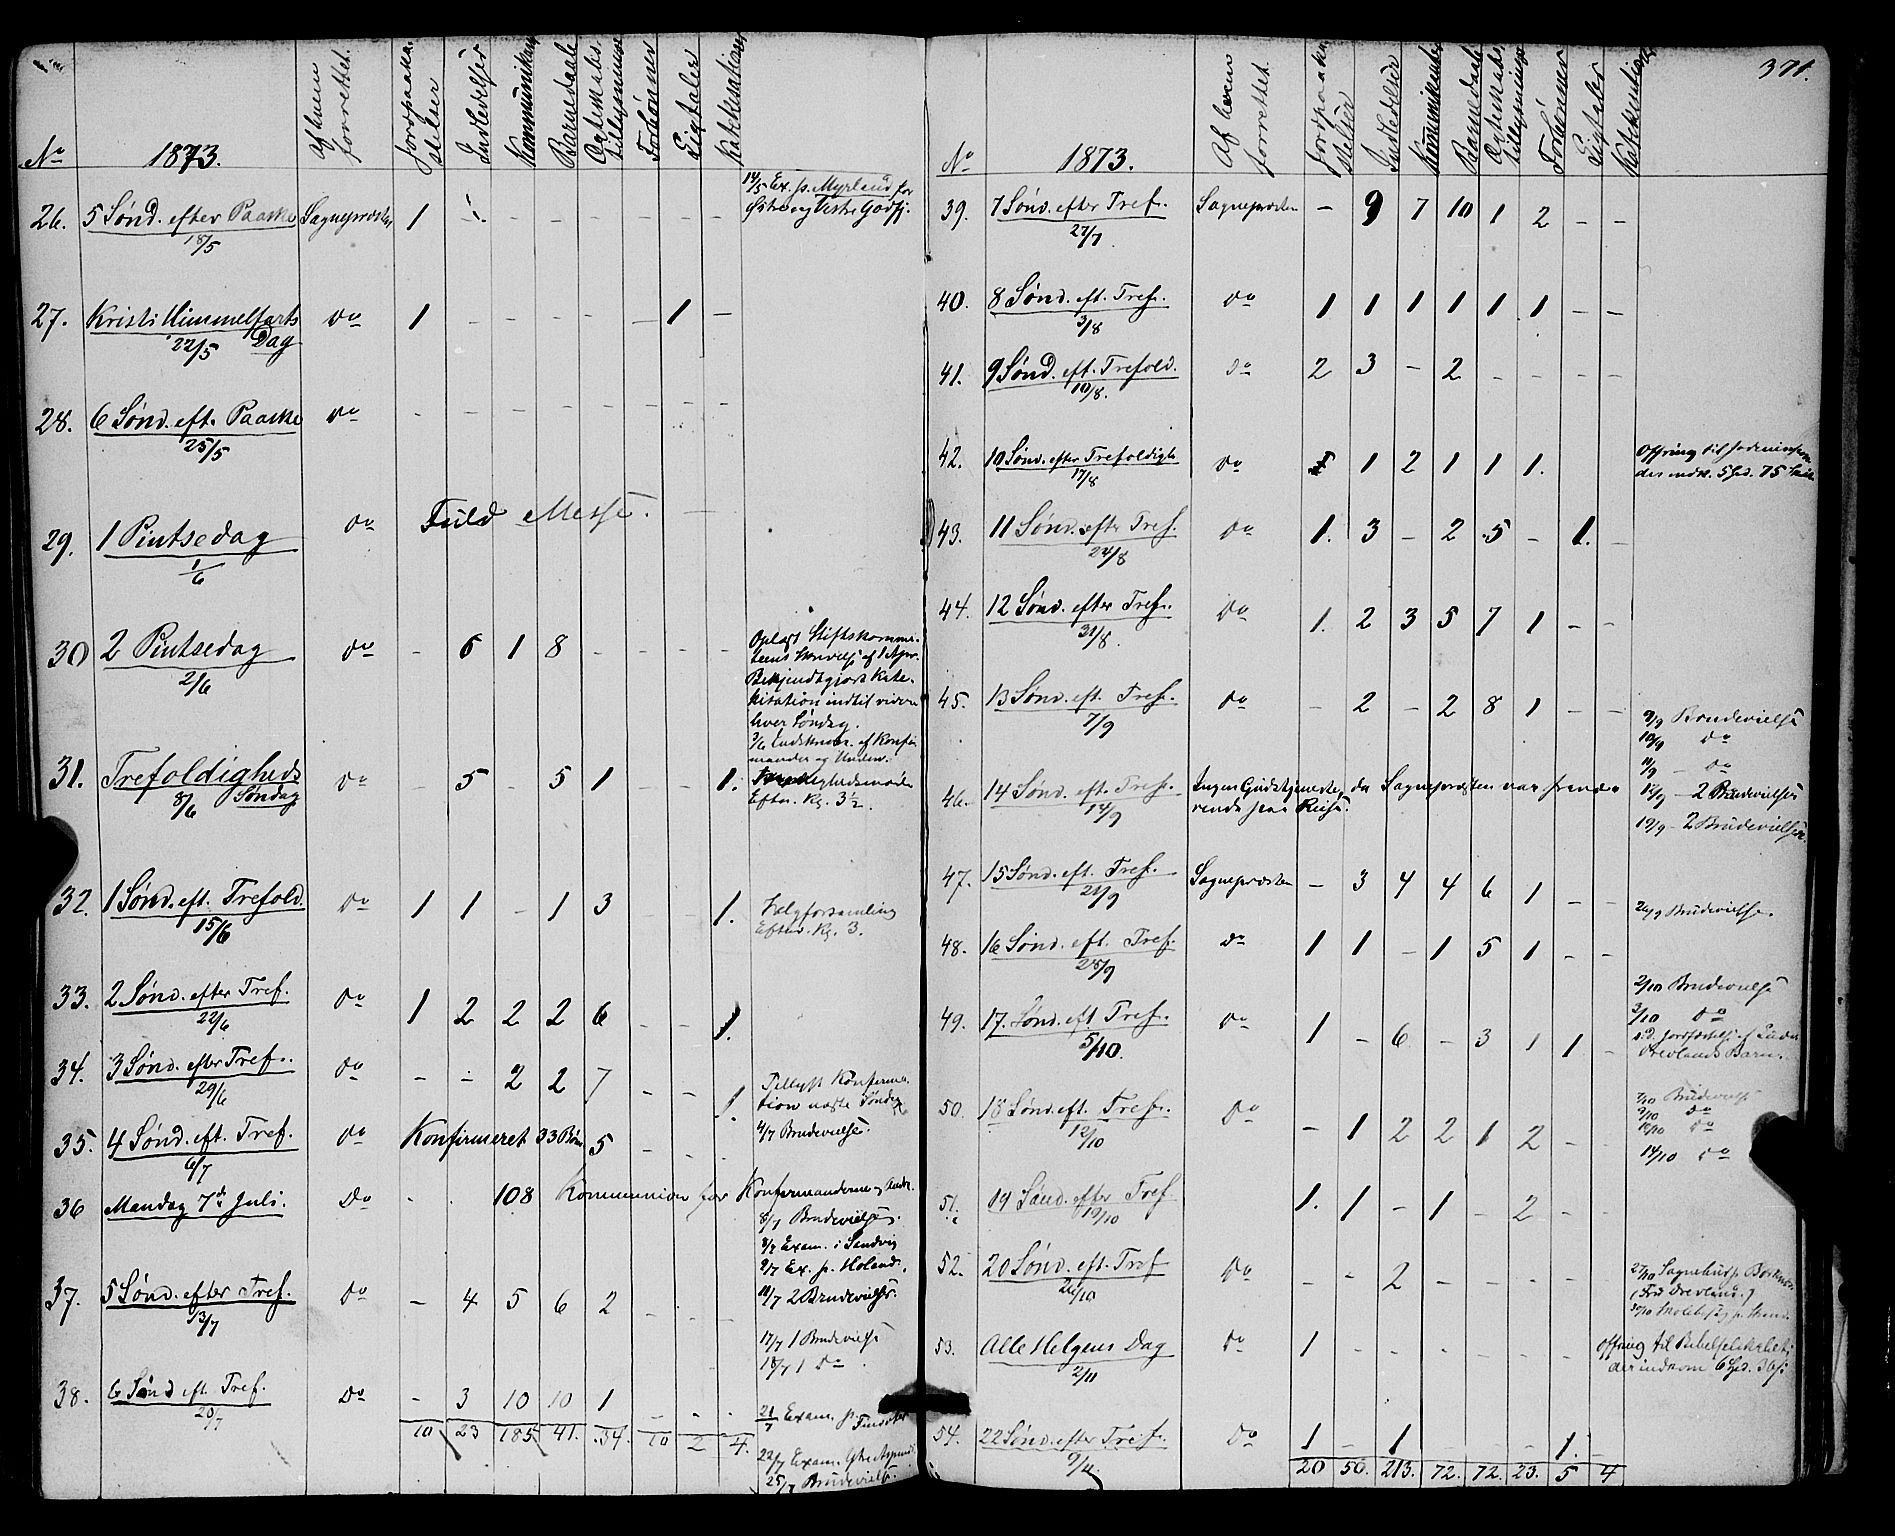 371.
No 1873. Af hvem forrettet. Jordpaakastelser Indledelser Kommunikanter Barnedaab Ægteskabs Tillysninger Forbønner Ligtaler Katekisationer
26. 5 Sønd. efter Paaske Sognepræsten 1 1. - - - - - -
18/5
14/5 Ex. p. Myrland for
Østre og Vestre Godfj.
27. Kristi Himmelfarts Do 1 - - - - - 1 -
22/5 Dag
28. 6 Sønd. eft. Paaske Do - - - - - - - -
25/5
29. 1 Pintsedag Do Fuld Messe. -
1/6
30 2 Pintsedag Do - 6 1 8 - - - -
2/6
Oplæst Stiftskomm
af 1 Apr.
Bekjendtgjort Kate-
kisation indtil videre
hver Søndag.
31. Trefoldigheds Do - 5 - 5 1 1.
8/6 Søndag
3/6 af Konfir
mander og
Efterm. Kl. 3½.
32. 1 Sønd. eft. Trefold. Do 1 1 - 1 3 - 1.
15/6
Valgforsamling
Efterm. Kl. 3.
33. 2 Sønd. efter Tref. Do 1 2 2 2 6 - - 1.
22/6
34. 3 Sønd. efter Tref. Do - - 2 2 7 - - 1
29/6
Tillyst Konfirma
tion næste Søndag
35. 4 Sønd. eft. Tref. Do Konfirmeret 33 Børn 5 - - .
6/7
4/7 Brudevielse.
36 Mandag 7de Juli. Do - . 108 Kommunion for Konfirmanderne og Andr.
8/7 Brudevielse.
8/7 Exam. i Sandvig
9/7 Ex. p. Holand.
37. 5 Sønd. efter Tref. Do - 4 5 6 2 - . .
13/7
11/7 2 Brudevielser.
17/7 1 Brudevielse
18/7 1 Do
38. 6 Sønd eft. Tref. Do - 3 10 10 1 - - .
20/7
21/7 Exam. p.
10 23 185 41. 34. 10 2 4.
22/7 Exam.
25/7 Brudevielse.
No 1873. Af hvem forrettet. Jordpaakastelser Indledelser Kommunikanter Barnedaab Ægteskabs Tillysninger Forbønner Ligtaler Katekisationer
39. 7 Sønd. efter Tref. Sognepræsten - 9 7 10 1 2 - -
27/7
40. 8 Sønd. eft. Tref. Do 1 1 1 1 1 1 - -
3/8
41. 9 Sønd. eft. Trefold. Do 2 3 - 2 - - - -
10/8.
42. 10 Sønd. efter Trefoldigh. Do 1 2 1 1 1.
17/8
Offring til
der indk. 5 Spd. 75 Skill
43. 11 Sønd. efter Tref. Do 1. 3 - 2 5 - 1. -
24/8
44. 12 Sønd. efter Tref. Do 1. 2 3 5 7 1 - -
31/8.
45. 13 Sønd. eft. Tref. Do - 2 - 2 8 1 - -
7/9
9/9 Brudevielse
10/9 Do
11/9 - Do
46. 14 Sønd. efter Tref. Ingen Gudstjeneste, da Sognepræsten var fravæ
14/9 rende paa Reise.
12/9 - 2 Brudevielser
19/9 - 2 Brudevielser
47. 15 Sønd. eft. Tref. Sognepræsten - 3 4 4 6 1 - -
21/9
26/9 Brudevielse.
48. 16 Sønd. eft. Tref. Do 1 1 - 1 5 1 - -
28/9
2/10 Brudevielse
49. 17. Sønd. eft. Tref. Do 1 - 6 - 3 1 1 -
5/10.
3/10 Do
s.D. Jordfæstelse af
Drevlands Barn.
50. 18 Sønd. eft. Tref. Do - 1 2 2 1 2 - -
12/10
7/10 Brudevielse
9/10 Do
10/10 Do
14/10 Do
51. 19 Sønd. efter Tref. 1. 1 - 1 - 2 - -
19/10
52. 20 Sønd. eft. Tref Do - - 2 - - - - -
26/10
27/10 Sognebud p.
(Fru Drevland.)
53. Alle Helgens Dag Do 1 - - - - - -
2/11
Offring til Bibelselskabet
der indkom 6 Spd. 36 s
54. 22 Sønd. efter Tref. Do 1 - 1 - - - 1. -
9/11.
20 50. 213. 72. 72. 23. 5 4